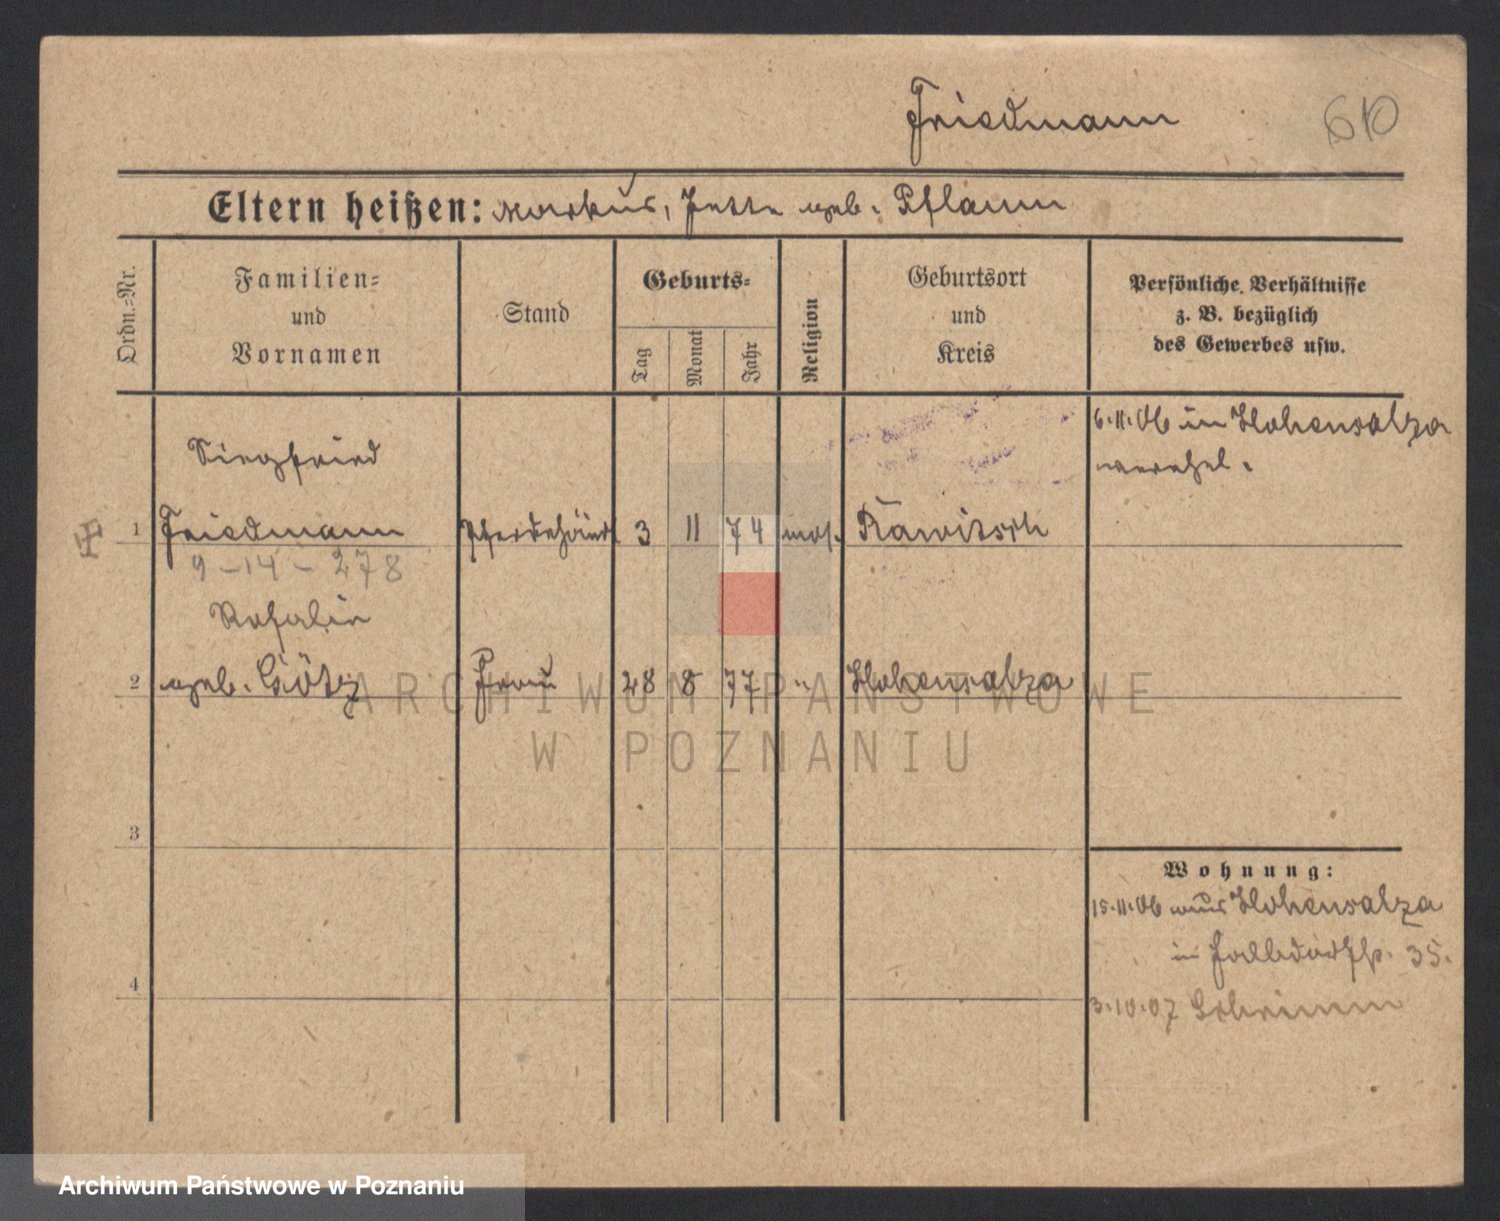 Friedmann
610
Eltern heißen: Markus, Jette geb. Pflaum
Ordn.=Nr.
Familien=
und
Vornamen
Stand
Geburts=
Tag
Monat
Jahr
Religion
Geburtsort
und
Kreis
Persönliche Verhältnisse
z. B. bezüglich
des Gewerbes usw.
6.11.06 in Hohensalza
verehel.
Siegfried
1 Friedmann Pferdehändl. 3 11 74 mos. Rawitsch
9-14-278
Rosalie
2 geb. Götz Frau 28 8 77 " Hohensalza
ARCHIWUM PAŃSTWOWE
W POZNANIU
3
Wohnung:
15.11.06 aus Hohensalza
in 35.
4
3.10.07 Schrimm
Archiwum Państwowe w Poznaniu